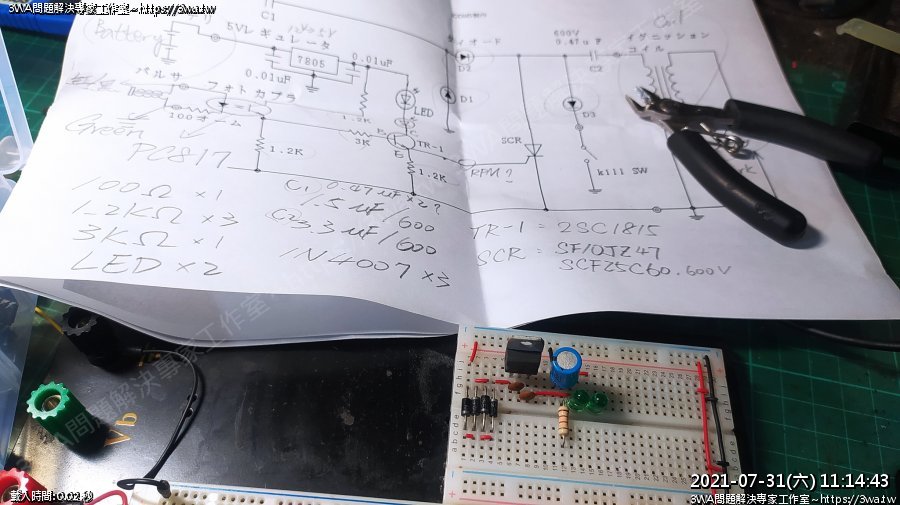 3WA問題解決專家工作室~https://3wa.tw
C1
(Battery)
5Vレギュレータ
7805
0.01uF
0.01uF
パルサ
フォトカプラ
LED
D2
D1
SCR
600V
0.47uF
C2
D3
kill SW
イグニッション
コイル
100オーム
1.2K
3K
TR-1
1.2K
1.2K
RPM?
Green
PC817
100Ω ×1
1.2KΩ ×3
3KΩ ×1
LED ×2
C1 0.47uF×2?
1.5uF/600
C2 3.3uF/600
1N4007 ×3
TR-1 = 2SC1815
SCR = SF10JZ47
SCF25C60.600V
Vb
2021-07-31(六) 11:14:43
載入時間: 0.02 秒
3WA問題解決專家工作室~https://3wa.tw